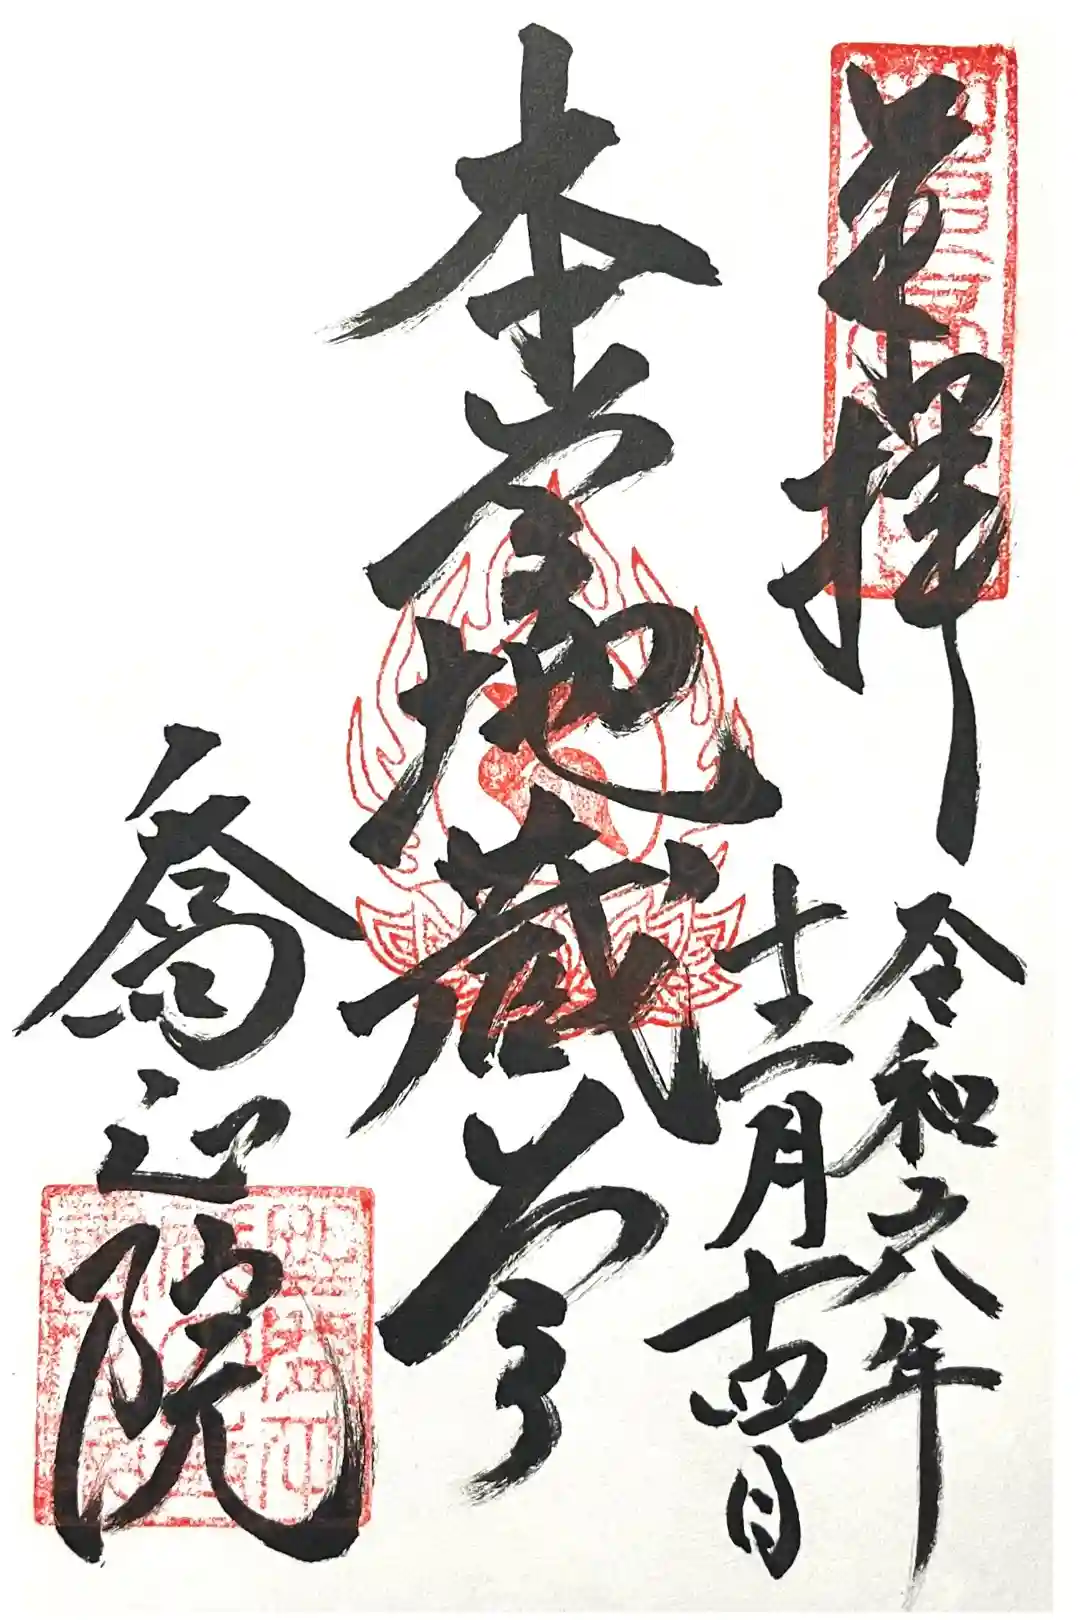 奉拝
令和六年
十二月十四日
本堂地蔵尊
喬迎院